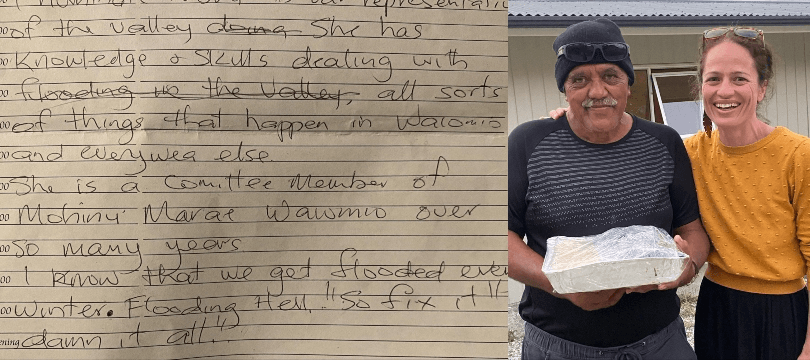 representatio
of the valley doing She has
Knowledge & Skills dealing with
flooding up the Valley, all sorts
of things that happen in Waiomio
and everywea else.
She is a Comittee Member of
Mohinui Marae Waiomio over
so many years
I know that we get flooded eve
winter. Flooding Hell. "So fix it"
damn it all."